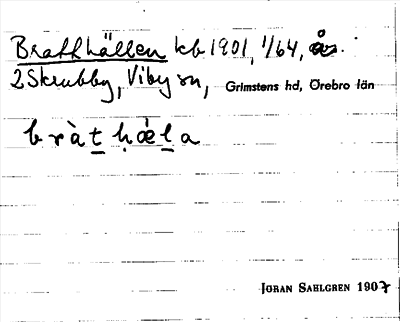 Bratthällen kb 1901, 1/64, ås.
2 Skrubby, Viby sn, Grimstens hd, Örebro län
bràt hæ̀la
JÖRAN SAHLGREN 1907